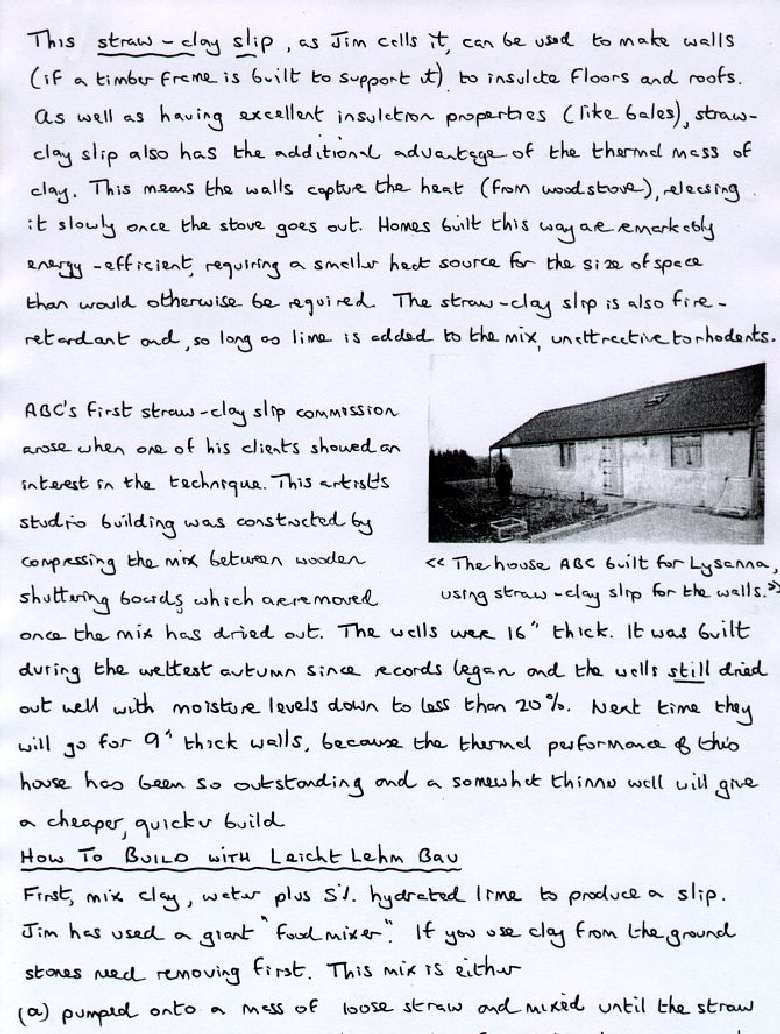 This straw-clay slip, as Jim calls it, can be used to make walls
(if a timber frame is built to support it) to insulate floors and roofs.
As well as having excellent insulation properties (like bales), straw-
clay slip also has the additional advantage of the thermal mass of
clay. This means the walls capture the heat (from woodstove), releasing
it slowly once the stove goes out. Homes built this way are remarkably
energy-efficient, requiring a smaller heat source for the size of space
than would otherwise be required. The straw-clay slip is also fire-
retardant and, so long as lime is added to the mix, unattractive to rhodents.
ABC's first straw-clay slip commission
arose when one of his clients showed an
interest in the technique. This artist's
studio building was constructed by
compressing the mix between wooden
shuttering boards which are removed
<< The house ABC built for Lysanna,
using straw-clay slip for the walls.>>
once the mix has dried out. The walls were 16" thick. It was built
during the wettest autumn since records began and the walls still dried
out well with moisture levels down to less than 20%. Next time they
will go for 9" thick walls, because the thermal performance of this
house has been so outstanding and a somewhat thinner wall will give
a cheaper, quicker build
How To Build with Leicht Lehm Bau
First, mix clay, water plus 5% hydrated lime to produce a slip.
Jim has used a giant "food mixer". If you use clay from the ground
stones need removing first. This mix is either
(a) pumped onto a mass of loose straw and mixed until the straw